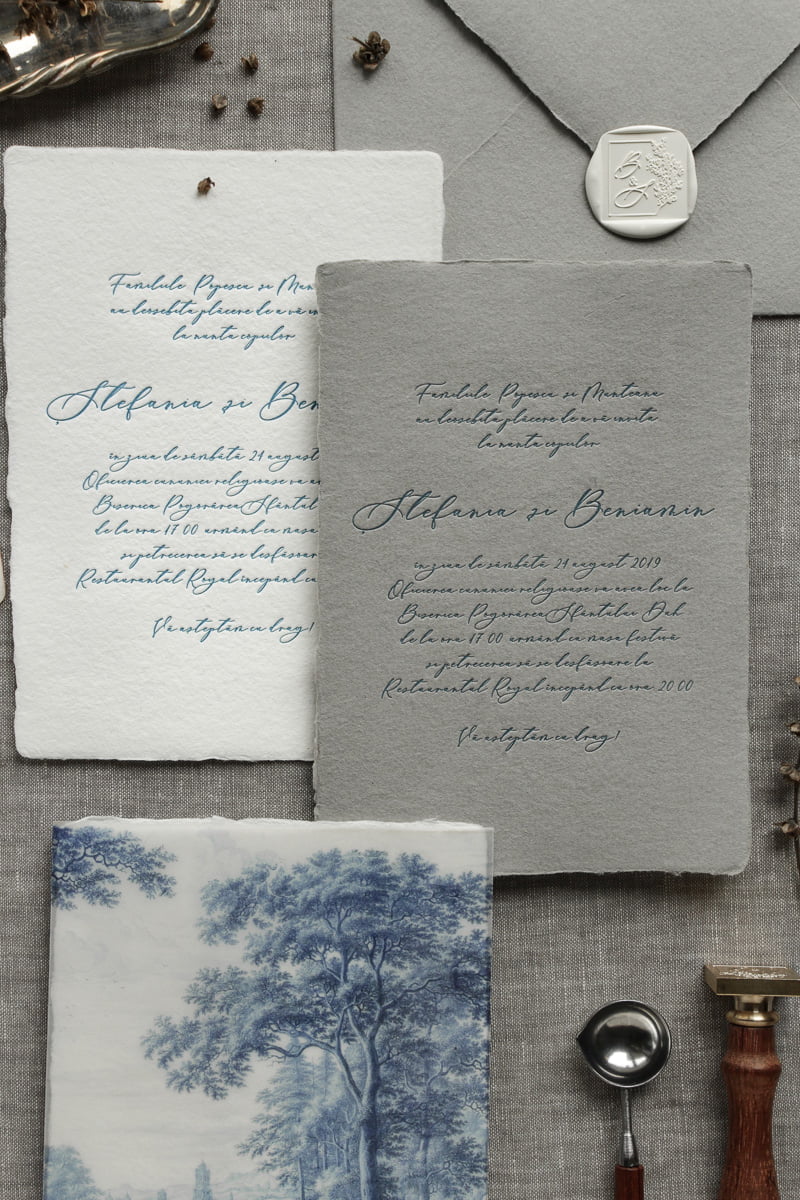 Familiile Popescu si
au deosebita plăcere de a vă
la nunta copiilor
Ștefania si
in ziua de sâmbătă 24 august
Oficierea cununiei religioase va
Biserica Pogorârea Sfântului
de la ora 17 00 urmând ca masa
si petrecerea să se
Restaurantul Royal incepând cu
Vă asteptăm cu drag!
Familiile Popescu si Munteanu
au deosebita plăcere de a vă invita
la nunta copiilor
Ștefania si Beniamin
in ziua de sâmbătă 24 august 2019
Oficierea cununiei religioase va avea loc la
Biserica Pogorârea Sfântului Duh
de la ora 17 00 urmând ca masa festivă
si petrecerea să se desfăsoare la
Restaurantul Royal incepând cu ora 20 00
Vă asteptăm cu drag!